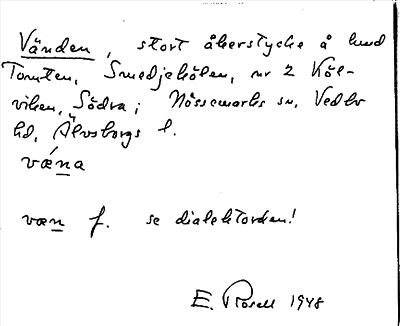 Vänden, stort åkerstycke å lund
Tomten, Smedjekölen, nr 2 Köl-
viken, Södra; Nössemarks sn, Vedbo
hd, Älvsborgs l.
vǽna
væn f. se dialektorden!
E. Rosell 1948